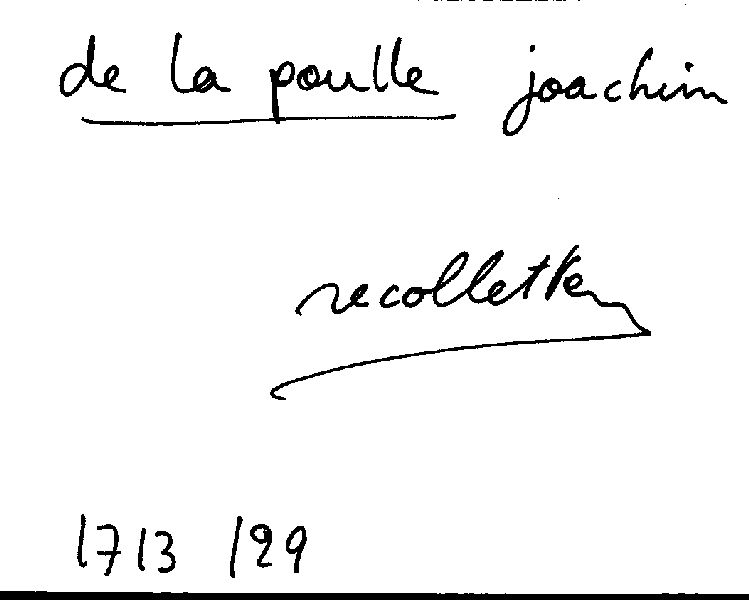 de la poulle joachim
recollette
1713 129